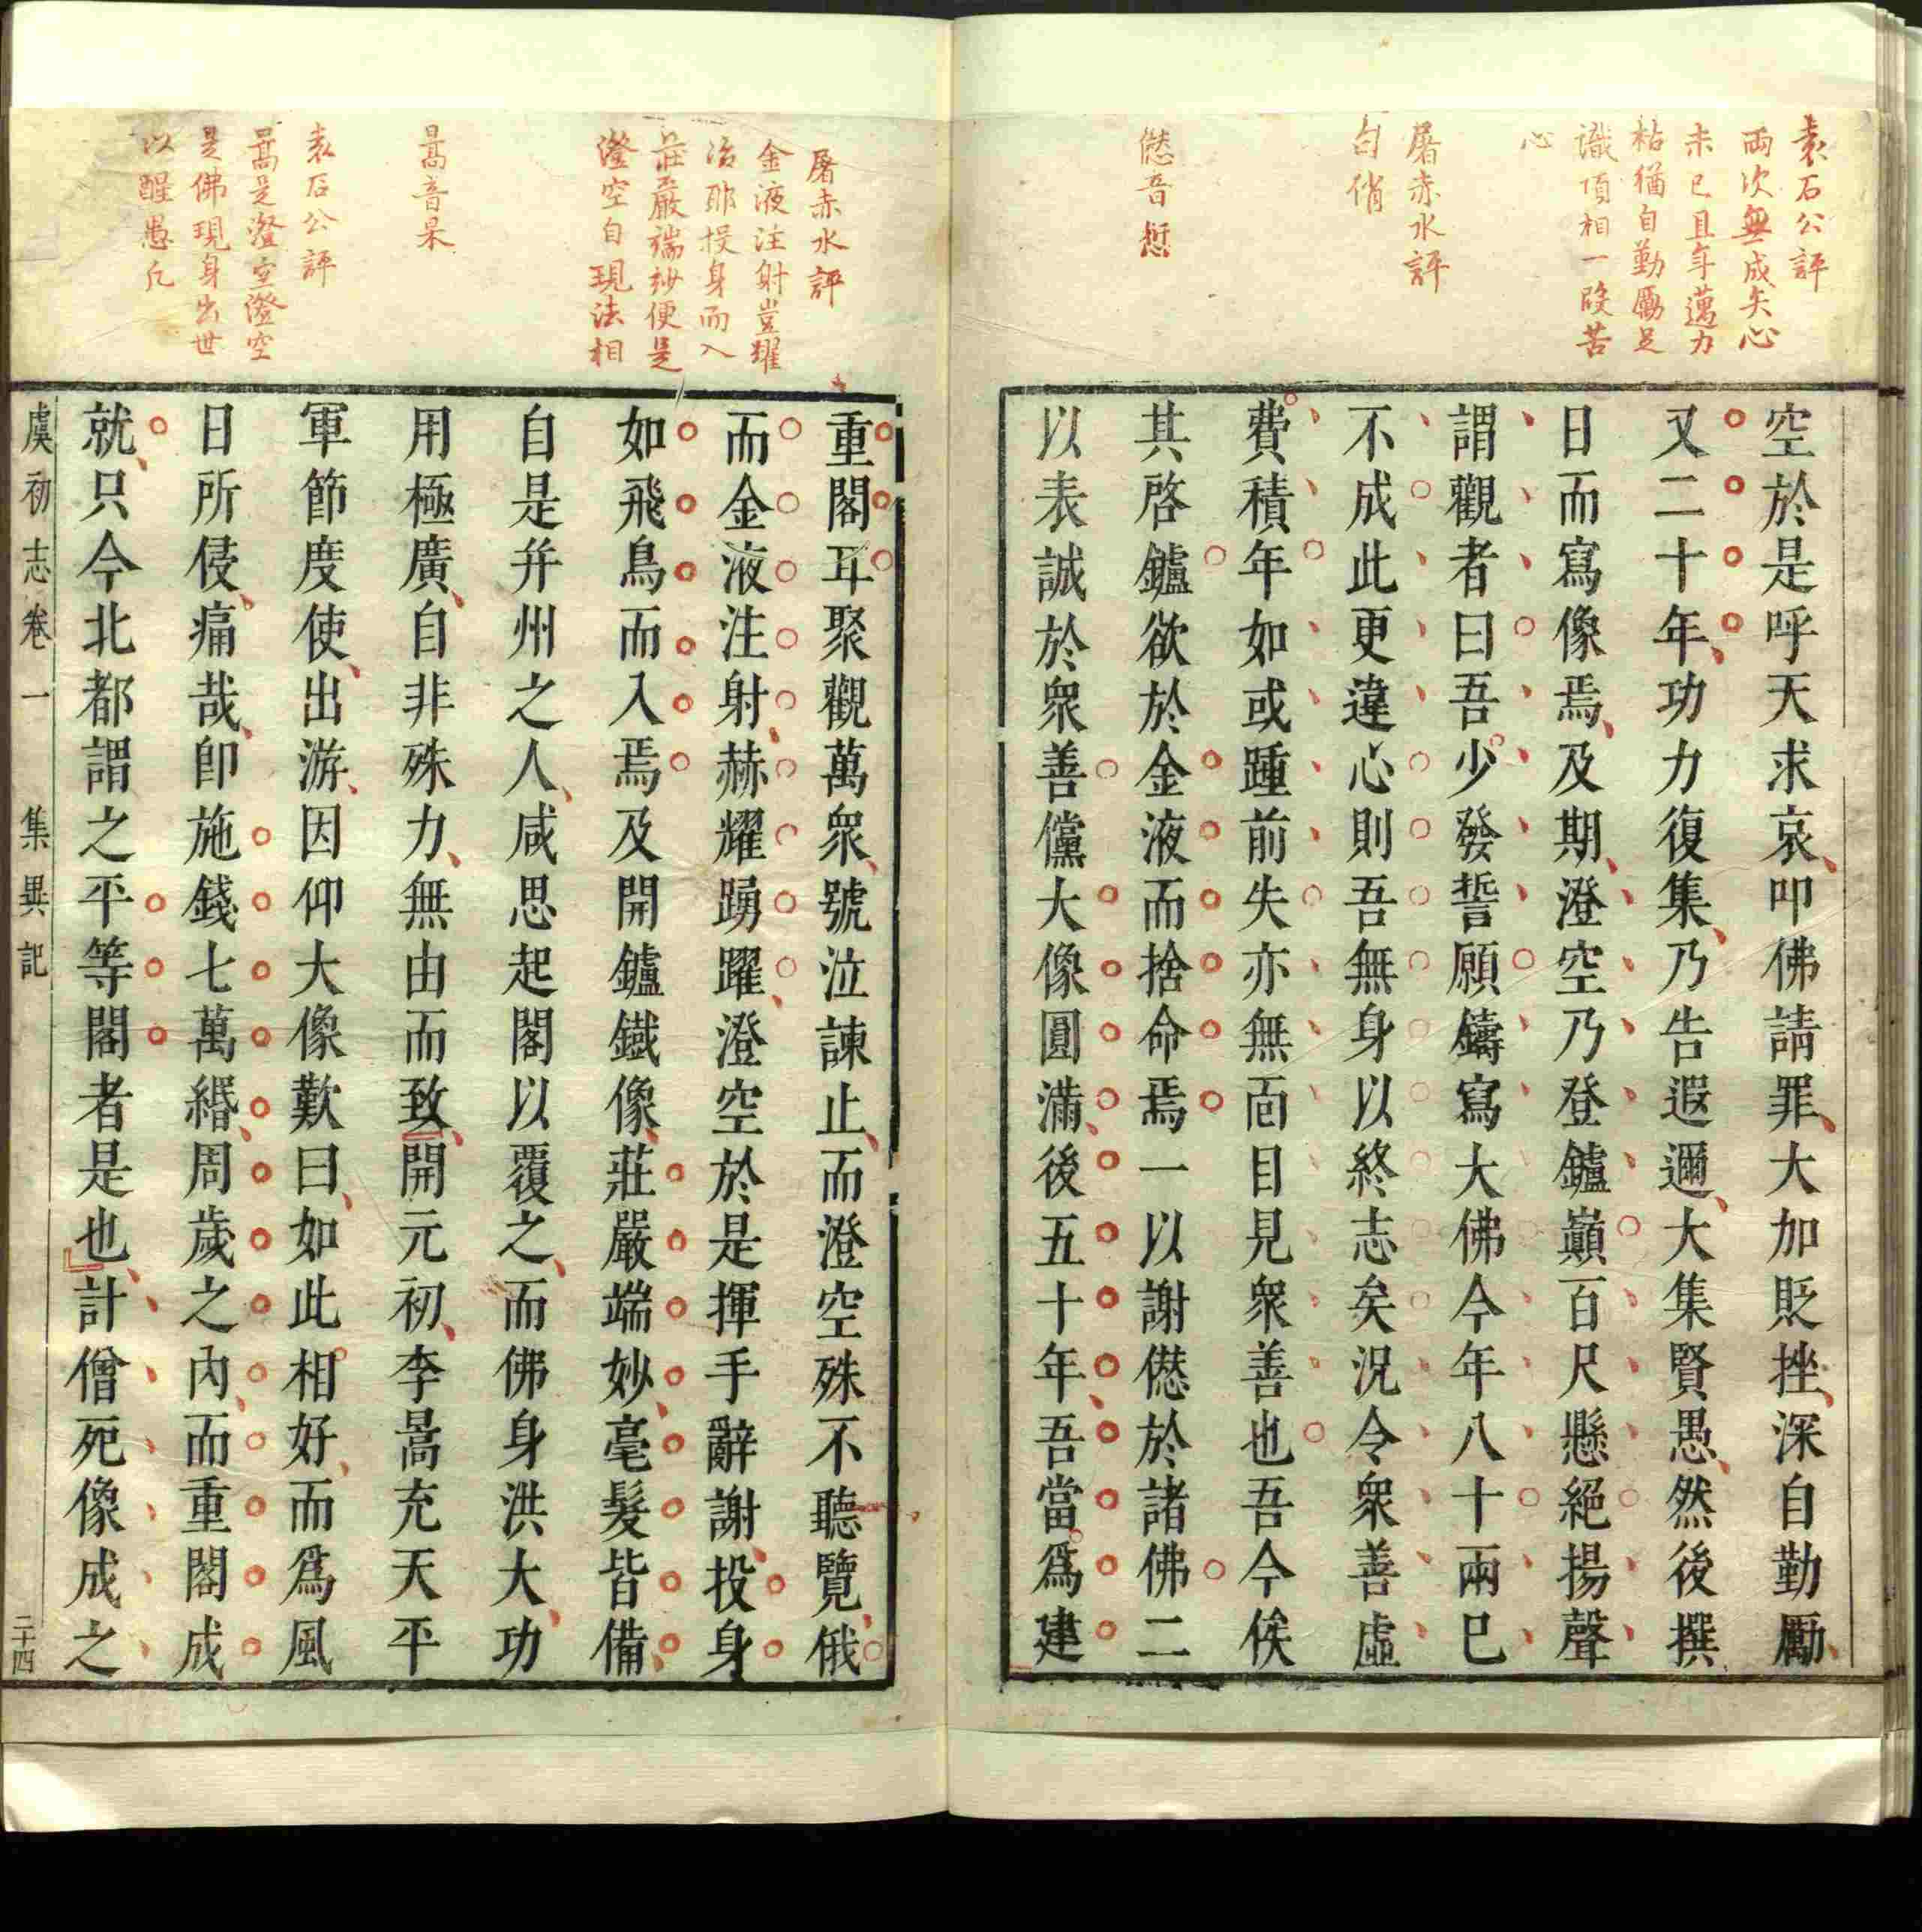 袁石公評
兩次無成矣心
未已且年邁力
枯猶自勤厲足
識頂相一段苦
心
屠赤水評
句俏
僽音愆
空於是呼天求哀叩佛請罪大加貶挫深自勤厲
又二十年功力復集乃告遐邇大集賢愚然後撰
日而寫像焉及期澄空乃登鑪巔百尺懸絕揚聲
謂觀者曰吾少發誓願鑄寫大佛今年八十兩已
不成此更違心則吾無身以終志矣況令衆善虛
費積年如或踵前失亦無面目見衆善也吾今俟
其啓鑪欲於金液而捨命焉一以謝僽於諸佛二
以表誠於衆善儻大像圓滿後五十年吾當爲建
屠赤水評
金液注射豈耀
冶耶投身而入
莊嚴端妙便是
澄空自現法相
暠音杲
袁石公評
暠是澄空澄空
是佛現身出世
以醒愚凡
重閣耳聚觀萬衆號泣諫止而澄空殊不聽覽俄
而金液注射赫耀踴躍澄空於是揮手辭謝投身
如飛鳥而入焉及開鑪鐵像莊嚴端妙毫髮皆備
自是并州之人咸思起閣以覆之而佛身洪大功
用極廣自非殊力無由而致開元初李暠充天平
軍節度使出游因仰大像歎曰如此相好而爲風
日所侵痛哉卽施錢七萬緡周歲之內而重閣成
就只今北都謂之平等閣者是也計僧死像成之
虞初志卷一 集異記
二十四